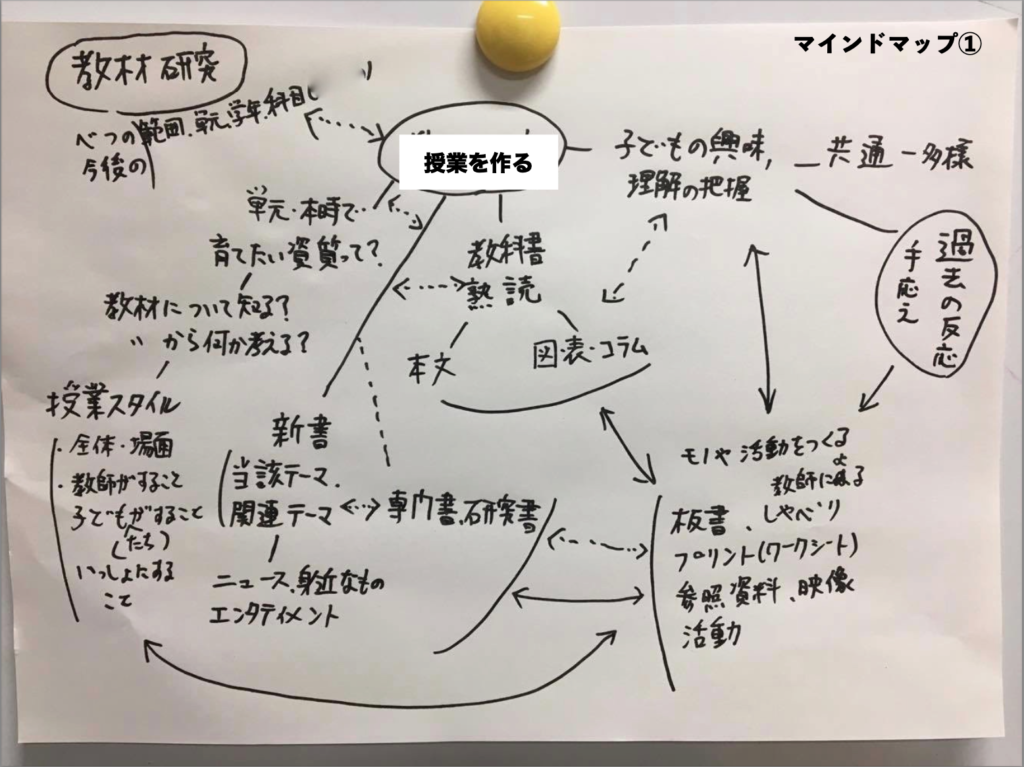 マインドマップ①
教材研究
べつの範囲、単元、学年、科目
今後の
授業を作る
子どもの興味,
理解の把握
共通ー多様
過去の反応
手応え
単元・本時で
育てたい資質って?
教材について知る?
〃から何か考える?
授業スタイル
・全体・場面
・教師がすること
子どもがすること
(たち)
いっしょにする
こと
教科書
熟読
本文
図・表・コラム
新書
当該テーマ、
関連テーマ
専門書、研究書
ニュース、身近なもの
エンタテイメント
モノや活動をつくる
教師による
板書、しゃべり
プリント(ワークシート)
参照資料、映像
活動